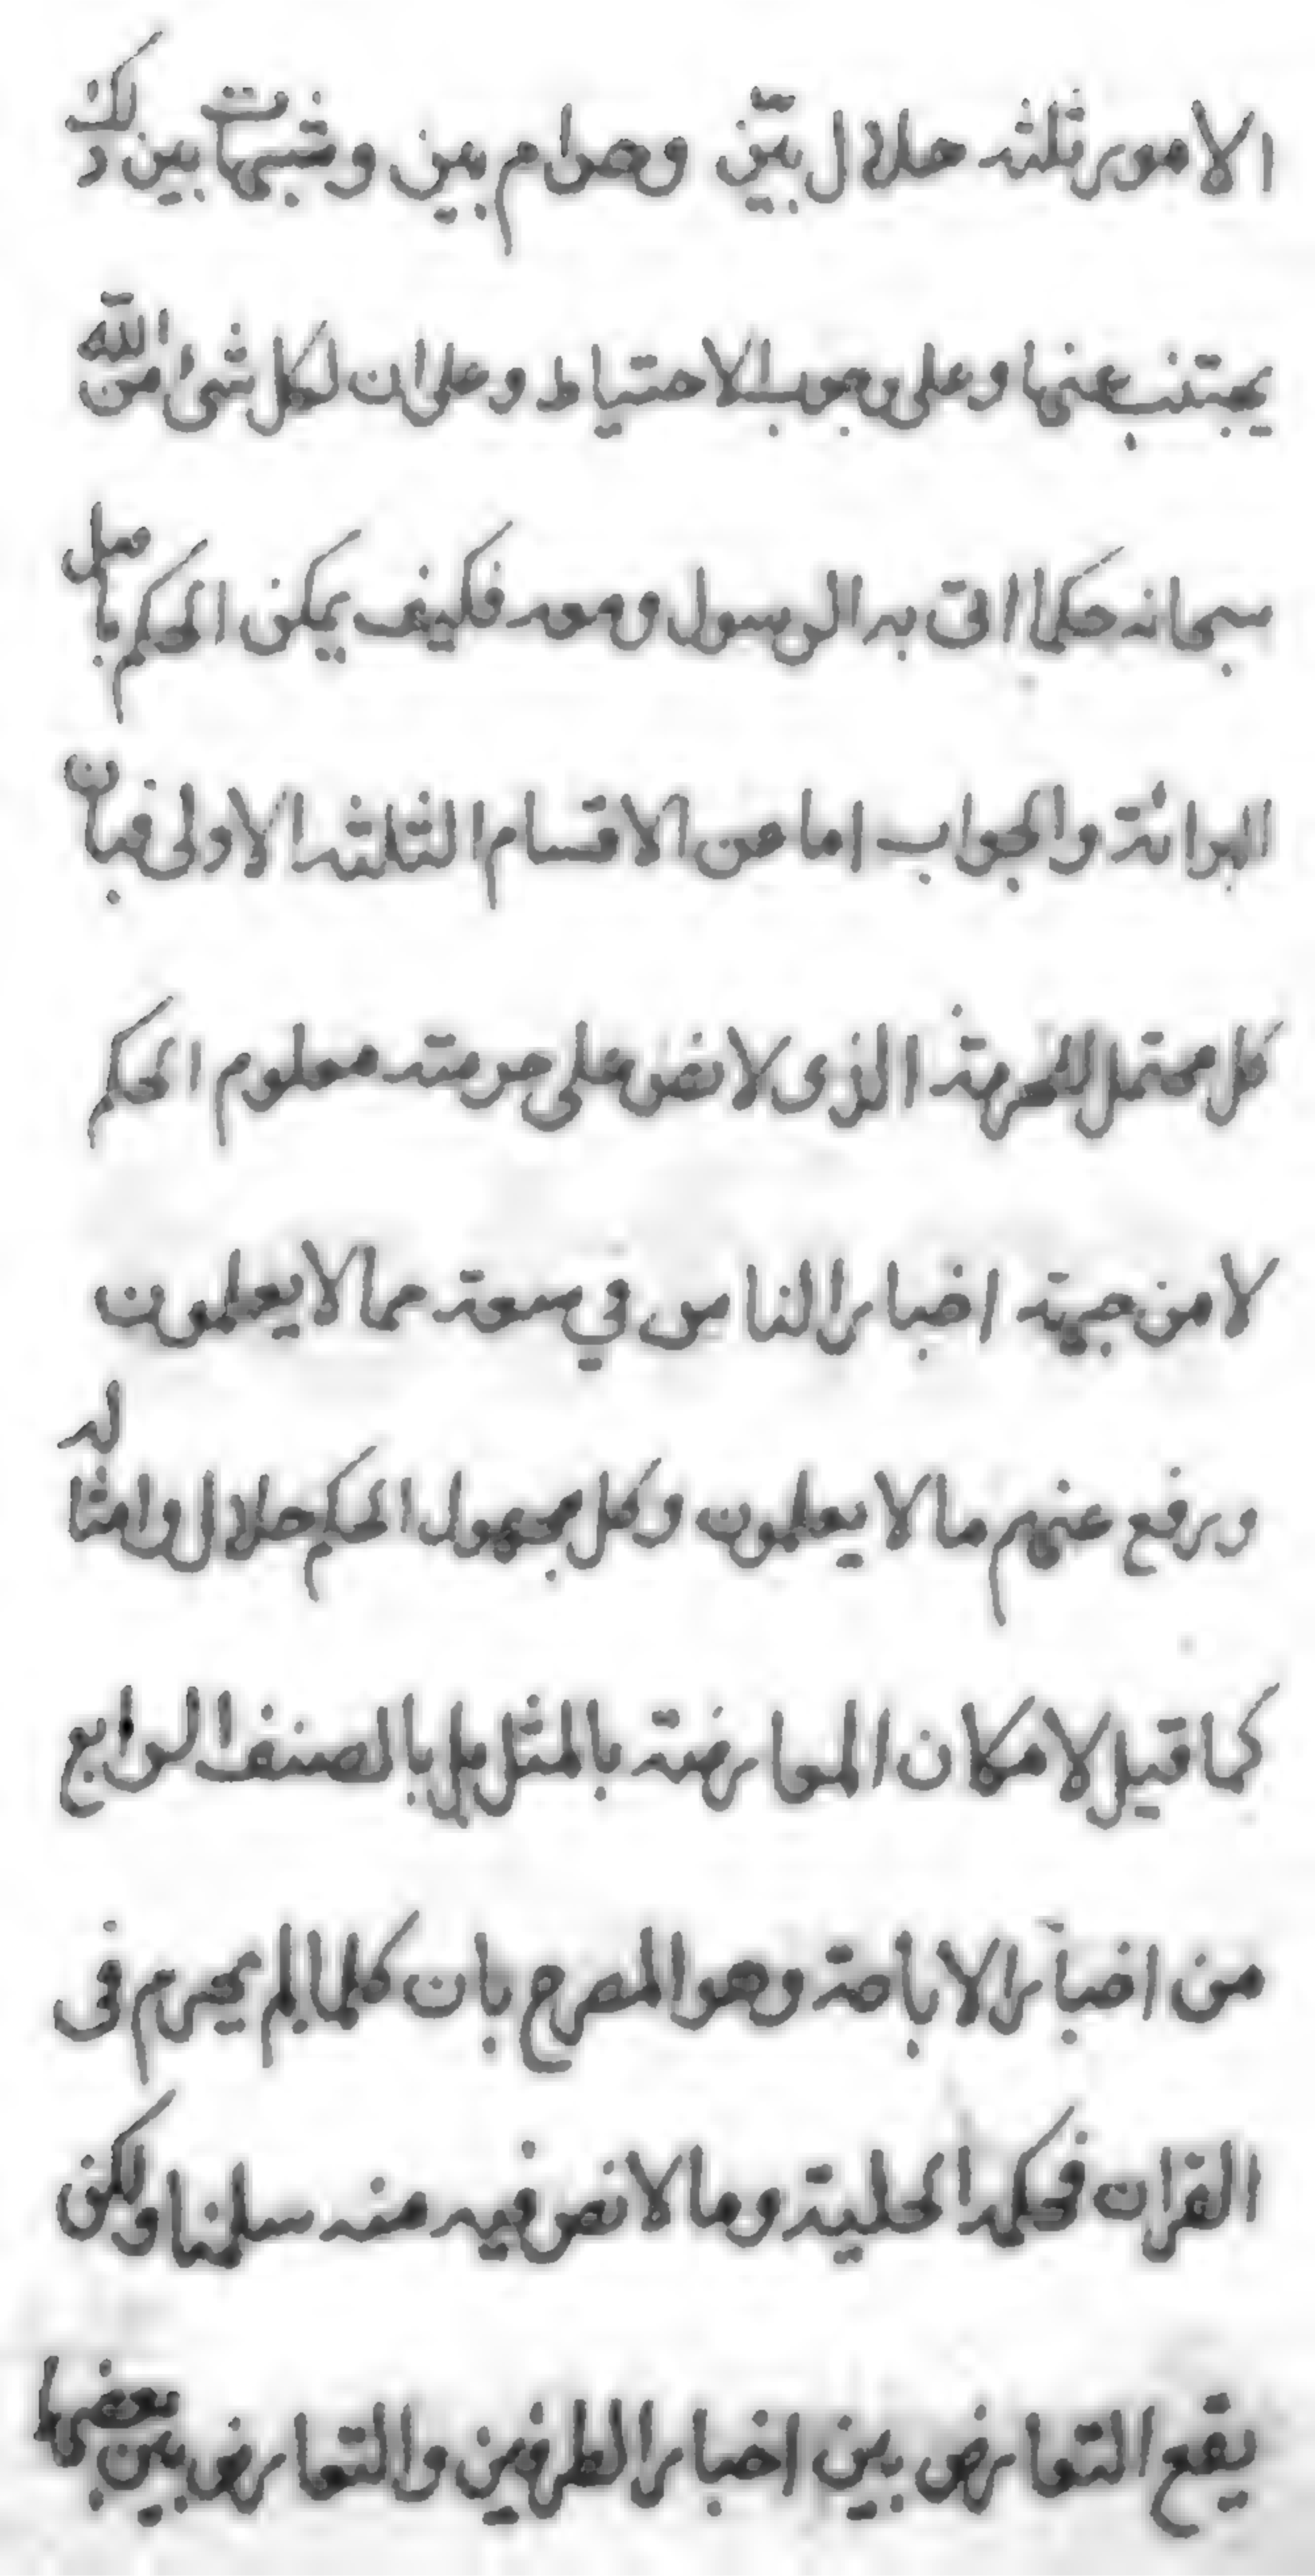 الامور ثلثه حلال بيّن وحرام بين وشبهات بين ذلك
يجتنب عنها وعلى وجوب الاحتياط وعلى ان لكل شئ من الله
سبحانه حكما اتى به الرسول ومعه فكيف يمكن الحكم باصل
البرائة والجواب اما عن الاقسام الثلثه الاولى فبان
كل محتمل الحرمة الذى لا نص على حرمته معلوم الحكم
لا من جهة اخبار الناس في سعة مما لا يعلمون
ورفع عنهم ما لا يعلمون وكل مجهول الحكم حلال وامثاله
كما قيل لامكان المعارضة بالمثل بل بالصنف الرابع
من اخبار الاباحة وهو المصرح بان كلما لم يحرم فى
القران فحكمه الحلية وما لا نص فيه منه سلمنا ولكن
يقع التعارض بين اخبار الطرفين والتعارض بين بعضها